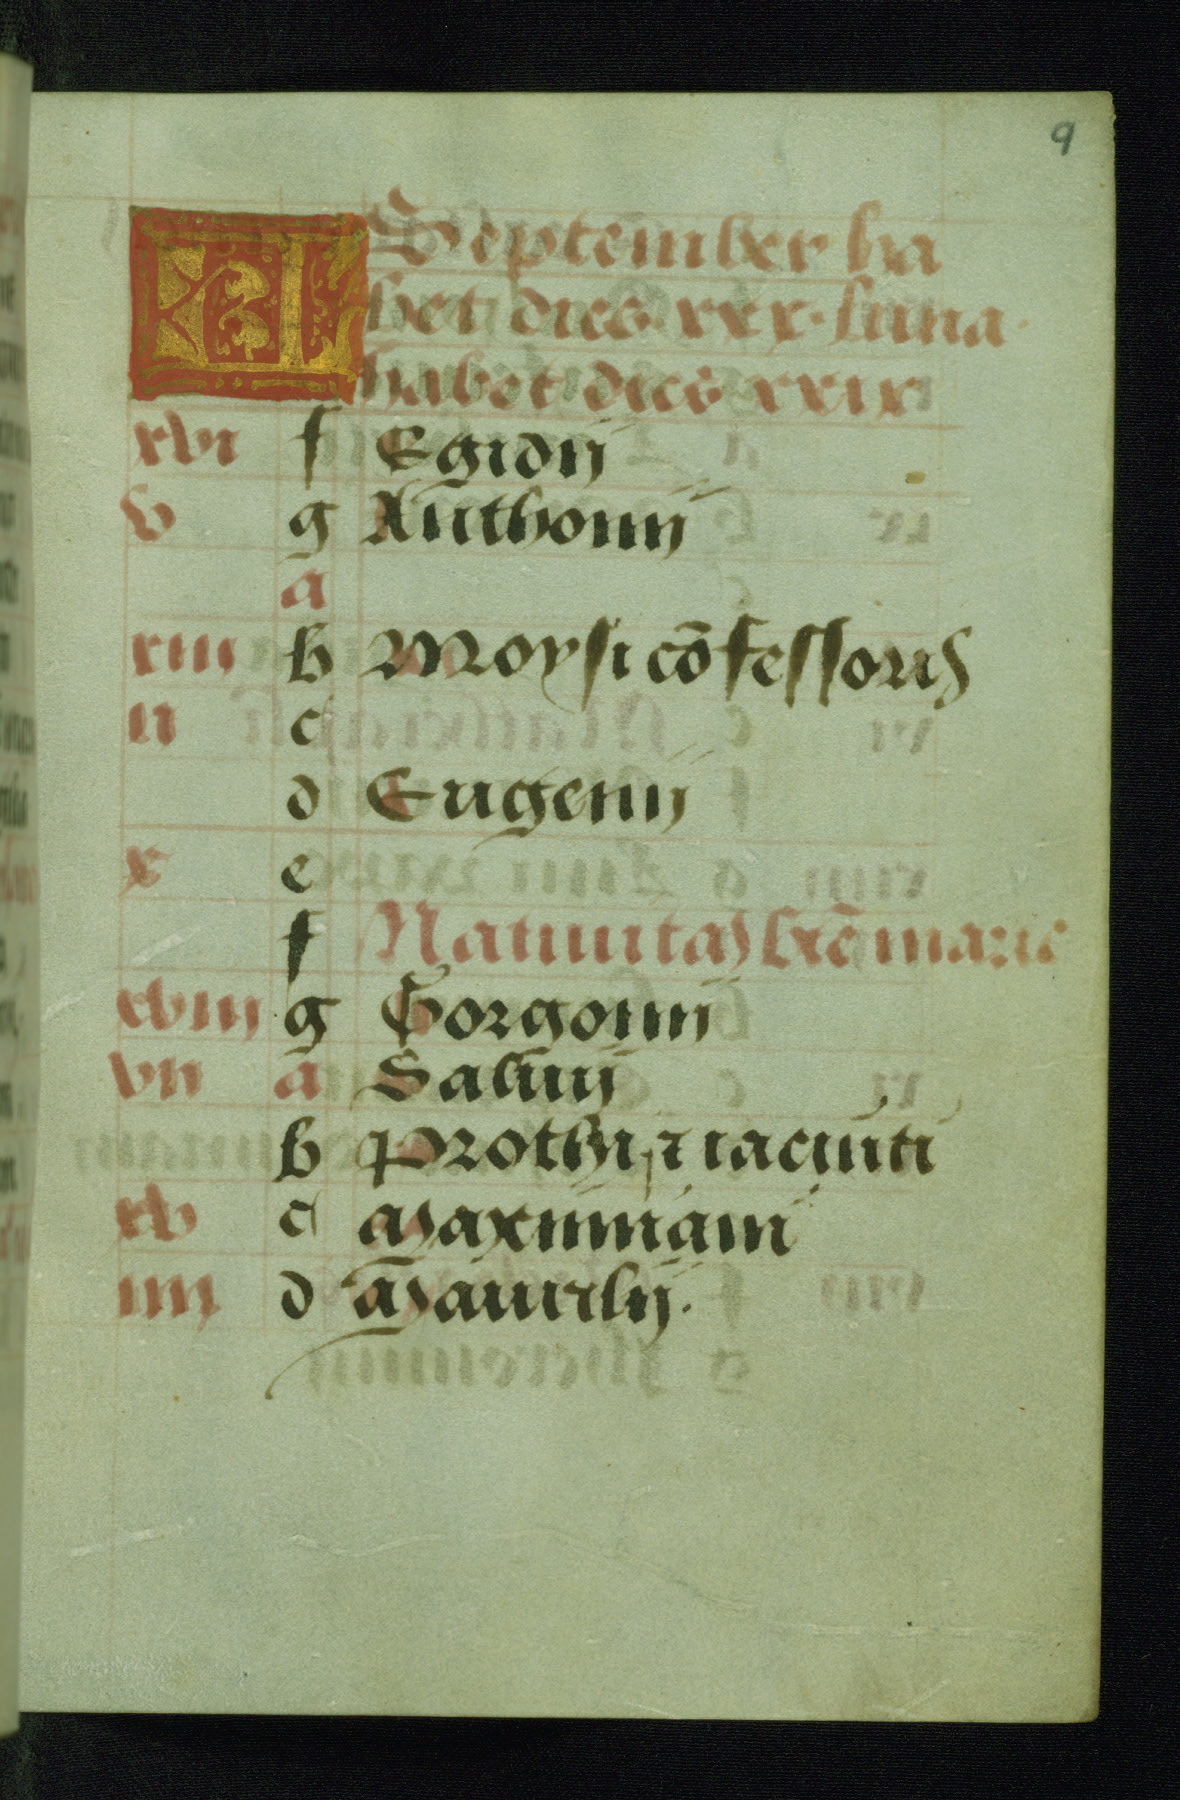 9
KL September ha
bet dies xxx luna
habet dies xxix
xvi f Egidij
v g Anthonij
a
xiii b Moysi cōfessoris
ii c
d Eugenij
x e
f Natiuitas btē marie
xviii g Gorgonij
vii a Saluij
b Prothi ⁊ iacincti
xv c Maximiani
iiii d Maurilij.